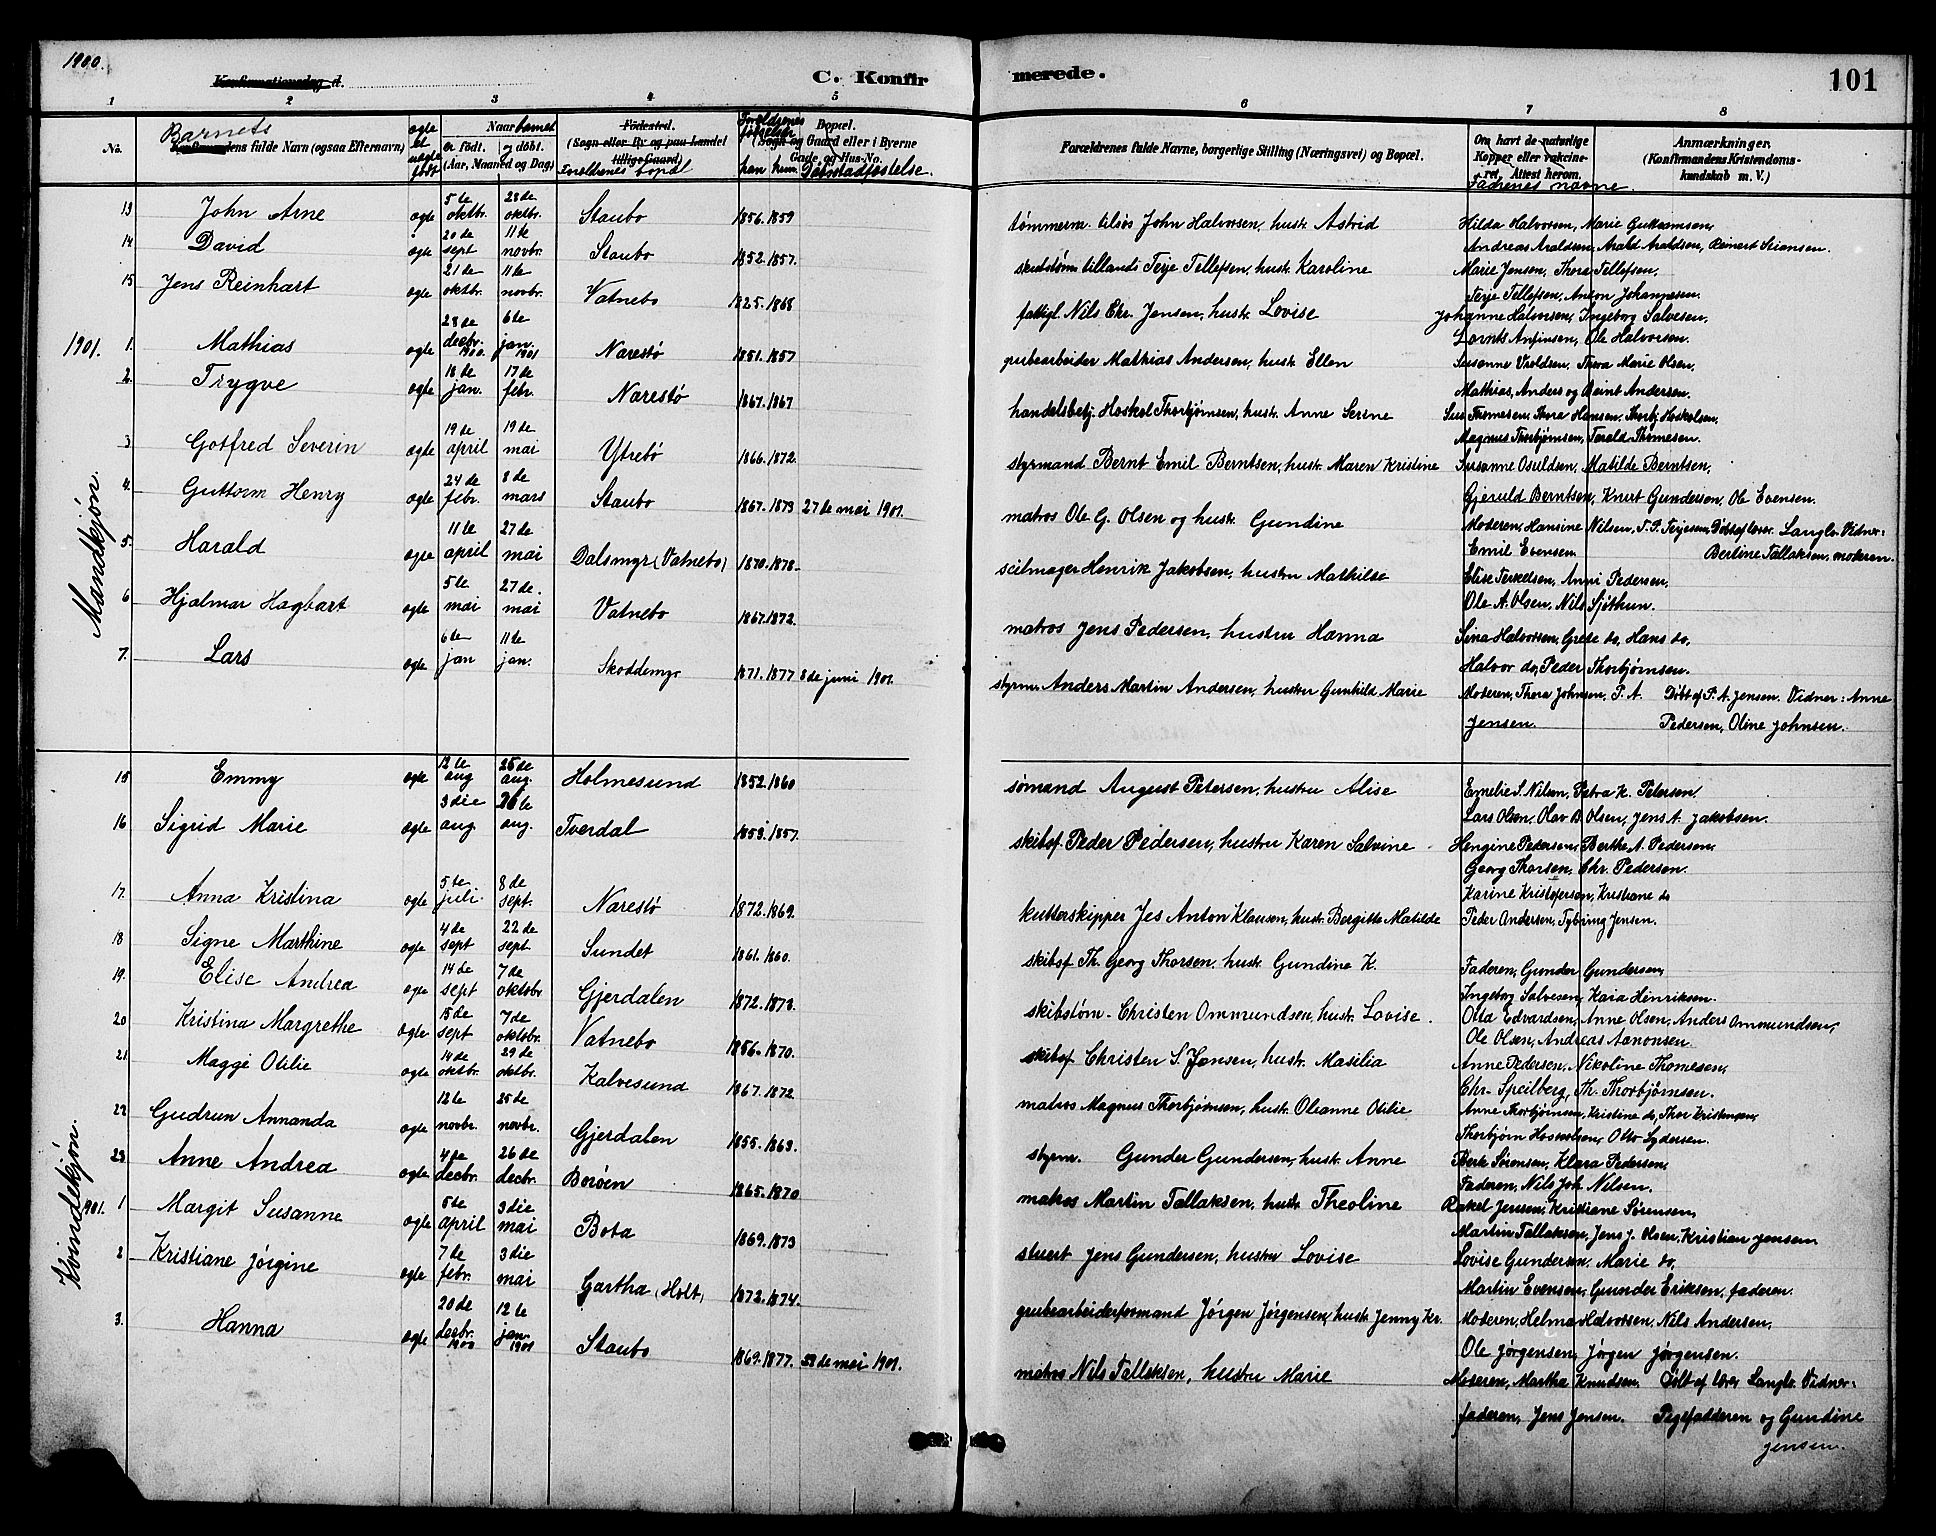 1900.
Konfirmationsdag d.
C. Konfirmerede.
101
1 2 3 4 5 6 7 8
No.
Barnets
fulde Navn (ogsaa Efternavn)
ægte el. uægte født
Naar barnet
er født. og døbt.
(Aar, Maaned og Dag)
Fødested.
(Sogn eller By og paa Landet tillige Gaard)
Foreldrenes bopæl
Foreldrenes fødselsår
han hun
Bopæl.
(Sogn og Gaard eller i Byerne Gade og Hus-No.
Dåpstadfæstelse.
Forældrenes fulde Navne, borgerlige Stilling (Næringsvei) og Bopæl.
Om havt de naturlige Kopper eller vakcineret. Attest herom.
Fadrenes navne
Anmærkninger.
(Konfirmandens Kristendomskundskab m. V.)
13 John Arne ægte 5te oktbr. 28de oktbr. Staubo 1856. 1859 tømmerm. tilsøs John Halvorsen, hustr. Astrid Hilda Halvorsen, Marie Guttormsen,
Andreas Araldsen, Arald Araldsen, Reinert Stiansen.
14 David ægte 20de sept 11te novbr. Staubo 1852. 1857. skibstømr. tillands Terje Tellefsen, hustr. Karoline Marie Jensen, Thora Tellefsen,
Terje Tellefsen, Anton Johannesen.
15 Jens Reinhart ægte 21de oktbr. 11te novbr. Vatnebo 1825. 1868 fattigl. Nils Chr. Jensen, hustr. Lovise Johanne Halvorsen, Ingeborg Salvesen,
Lornts Anfinsen, Ole Halvorsen.
1901.
Mandkjøn.
1. Mathias ægte 28de decbr. 1900. 6te jan. 1901 Narestø 1851. 1857 grubearbeider Mathias Andersen, hustr. Ellen Susanne Vroldsen, Thora Marie Olsen,
Mathias, Anders og Reint Andersen.
2. Trygve ægte 16de jan. 17de febr. Narestø 1867. 1867 handelsbetj. Hoskol Thorbjørnsen, hustr. Anne Serine Sus. Thomesen, Thora Hansen, Thorbj. Hoskolsen,
Magnus Thorbjørnsen, Terald Thomesen.
3. Gotfred Severin ægte 19de april 19de mai Ytrebø 1866. 1872. styrmand Bernt Emil Berntsen, hustr. Maren Kristine Susanne Osuldsen, Matilde Berntsen,
Gjeruld Berntsen, Knut Gundersen, Ole Evensen.
4. Guttorm Henry ægte 24de febr. 8de mars Staubo 1867. 1873 27de mai 1901. matros Ole G. Olsen og hustr. Gundine Moderen, Hansine Nilsen, T. P. Terjesen, Døbt af lærer Langlo. Vidner:
Emil Evensen Bertine Tallaksen, moderen.
5. Harald ægte 11te april 27de mai Dalsmyr (Vatnebo) 1870. 1878. seilmager Henrik Jakobsen, hustru Mathilde Elise Terkelsen, Anni Pedersen,
Ole A. Olsen, Nils Sjøthun.
6 Hjalmar Hagbart ægte 5te mai 27de. mai Vatnebo 1867. 1872. matros Jens Pedersen, hustru Hanna Sina Halvorsen, Grete do, Hans do,
Halvor do, Peder Thorbjørnsen.
7. Lars ægte 6te jan 11te jan. Skoddemyr 1871. 1877 8de juni 1901. styrm. Anders Martin Andersen, hustru Gunhild Marie Moderen, Thora Johnsen, P. A. Døbt af P. A. Jensen. Vidner: Anne
Jensen. Pedersen, Oline Johnsen.
15 Emmy ægte 12te aug 26de aug. Holmesund 1852. 1860 sømand August Petersen, hustru Alise Emelie S. Nilsen, Petra K. Petersen,
Lars Olsen, Olav B. Olsen, Jens A. Jakobsen.
16 Sigrid Marie ægte 3die aug. 26te aug. Tverdal 1853. 1857. skibsf. Peder Pedersen, hustru Karen Salvine Hengine Pedersen, Berthe A. Pedersen,
Georg Thorsen, Chr. Pedersen.
17. Anna Kristina ægte 5te juli. 8de sept. Narestø 1872. 1869. kutterskipper Jes Anton Klausen, hustr. Bergitte Matilde Karine Kristofersen, Kristiane do
Peder Andersen, Tybring Jensen.
18 Signe Marthine ægte 4de sept 22de sept. Sundet 1861. 1860. skibsf. Th. Georg Thorsen, hustr. Gundine K. Faderen, Gunder Gundersen,
Ingeborg Salvesen, Kaia Henriksen.
19. Elise Andrea ægte 14de sept 7de oktobr Gjerdalen 1872. 1873. skibstøm. Christen Ommundsen, hustr. Lovise. Otta Edvardsen, Anne Olsen, Anders Ommundsen,
Ole Olsen, Andreas Aanonsen.
20 Kristina Margrethe ægte 15de sept 7de oktobr. Vatnebo 1856. 1870. skibsf Christen S. Jensen, hustr. Masilia Anne Pedersen, Nikoline Thomesen,
Chr. Speilberg, Th. Thorbjørnsen.
21. Magge Otilie ægte 14de oktbr. 29de oktbr. Kalvesund 1867. 1872 matros Magnus Thorbjørnsen, hustr. Oleanne Otilie Anne Thorbjørnsen, Kristine do, Thor Kristensen,
Thorbjørn Hoskolsen, Otto Sydersen.
Kvindekjøn.
22 Gudrun Annanda ægte 12te novbr. 25de novbr. Gjerdalen 1855. 1863. styrm. Gunder Gundersen, hustr. Anne Berte Sørensen, Klara Pedersen,
Faderen, Nils Joh. Nilsen.
23 Anne Andrea ægte 4de decbr. 26de decbr. Borøen 1865. 1870 matros Martin Tallaksen, hustr. Theoline Rakel Jensen, Kristiane Sørensen,
Martin Tallaksen, Jens J. Olsen, Kristian Jensen
1901. 1 Margit Susanne ægte 6te april 3die mai Bota 1869. 1873 stuert Jens Gundersen, hustru Lovise Lovise Gundersen, Marie do,
Martin Evensen, Gunder Eriksen, faderen.
2 Kristiane Jørgine ægte 7de febr. 3die mai Gartha (Holt) 1872. 1874. grubearbeiderformand Jørgen Jørgensen, hustr. Jenny Kr. Moderen, Helma Halvorsen, Nils Andersen,
Ole Jørgensen, Jørgen Jørgensen.
3. Hanna ægte 20de decbr. 1900 12te jan. 1901 Staubo 1869. 1877. de mai 1901. matros Nils Tallaksen, hustru Marie Moderen, Martha Knudsen, Døbt af lærer Langlo. Vidner:
faderen, Jens Jensen. Plejefadderen og Gundine
Jensen.